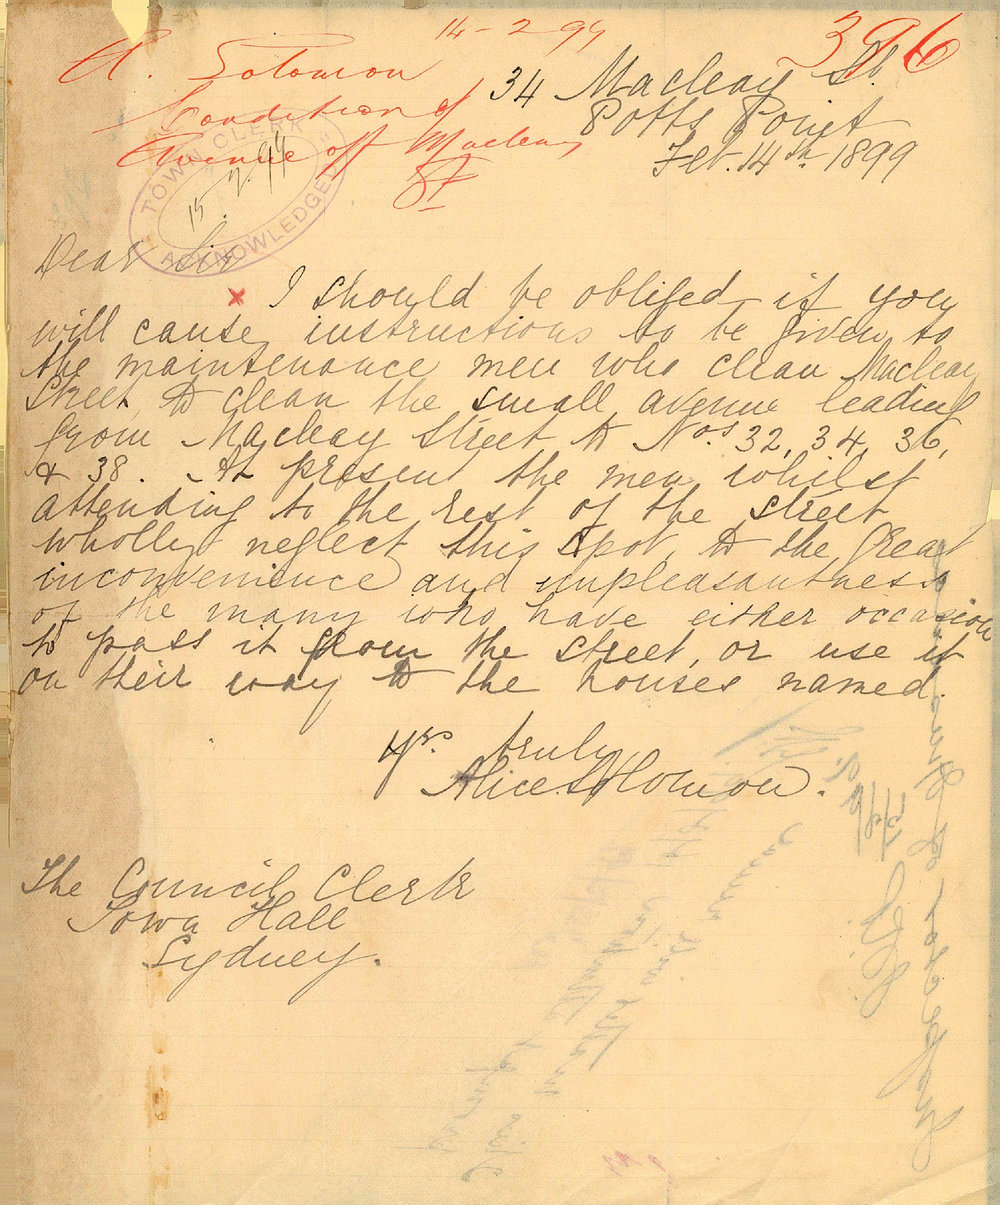 14-2-99
396
A. Solomon
Condition of
Avenue off Macleay
St
TOWN CLERK
15.2.99
ACKNOWLEDGED
34 Macleay St.
Potts Point
Feb. 14th. 1899
Dear Sir
x I should be obliged if you
will cause instructions to be given to
the maintenance men who clean Macleay
Street, to clean the small avenue leading
from Macleay Street to Nos 32, 34, 36,
& 38. At present the men whilst
attending to the rest of the street
wholly neglect this spot, to the great
inconvenience and unpleasantness
of the many who have either occasion
to pass it from the street, or use it
on their way to the houses named.
Yrs. truly
Alice Solomon.
The Council Clerk
Town Hall
Sydney.